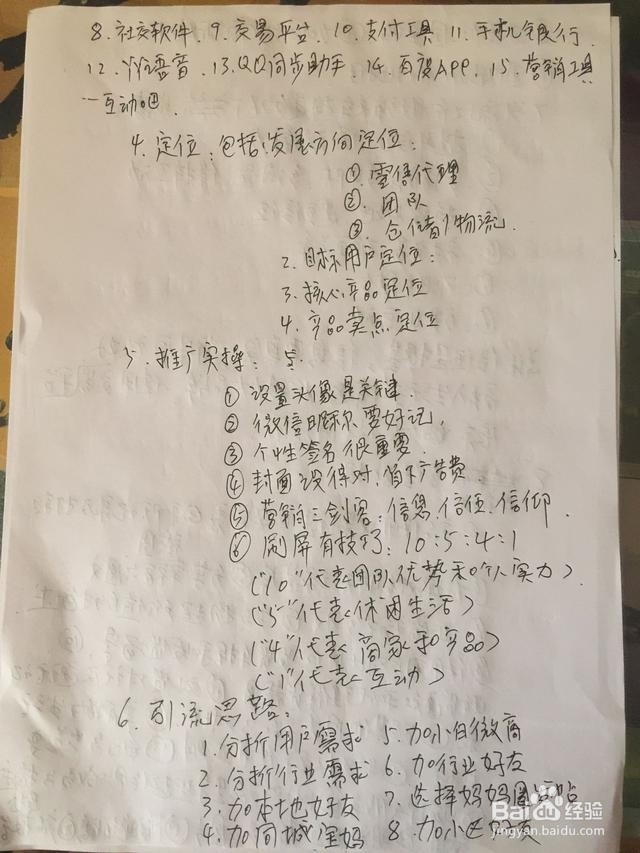 8. 社交软件. 9. 交易平台. 10. 支付工具. 11. 手机银行.
12. YY语音. 13. QQ同步助手. 14. 百度APP. 15. 营销工具
一互动吧.
4. 定位: 包括: 发展方向定位:
① 零售代理
②. 团队
③. 仓储物流.
2. 目标用户定位:
3. 核心产品定位
4. 产品卖点定位
5. 推广实操:
① 设置头像是关键.
② 微信昵称要好记,
③ 个性签名很重要.
④ 封面设得对, 省下广告费.
⑤ 营销三剑客: 信息. 信任. 信仰.
⑥ 刷屏有技巧: 10:5:4:1
("10"代表团队优势和个人实力)
("5"代表休闲生活)
("4"代表商家和产品)
("1"代表互动)
6. 引流思路:
1. 分析用户需求 5. 加小白微商
2. 分析行业需求 6. 加行业好友
3. 加本地好友 7. 选择妈妈圈
4. 加同城宝妈 8. 加小区
Baidu经验
jingyan.baidu.com